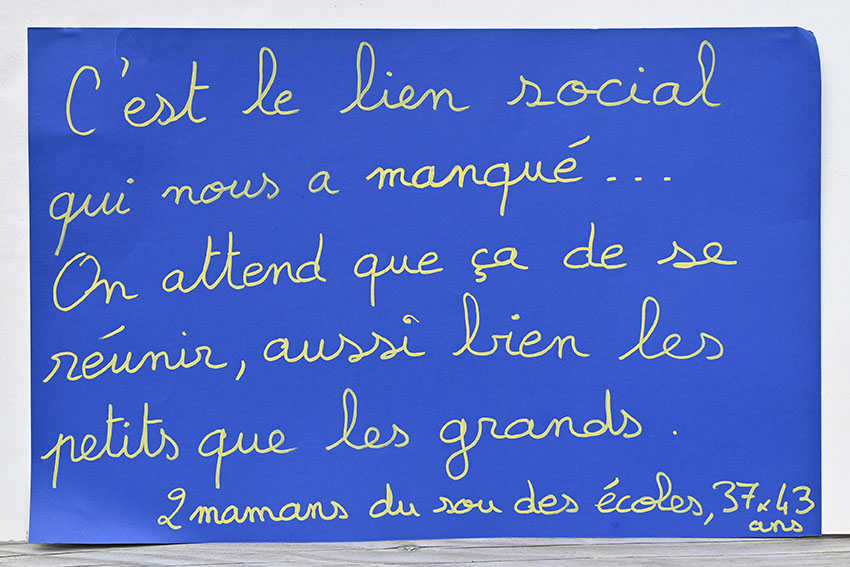 C'est le lien social
qui nous a manqué...
On attend que ça de se
réunir, aussi bien les
petits que les grands.
2 mamans du sou des écoles, 37 x 43
ans